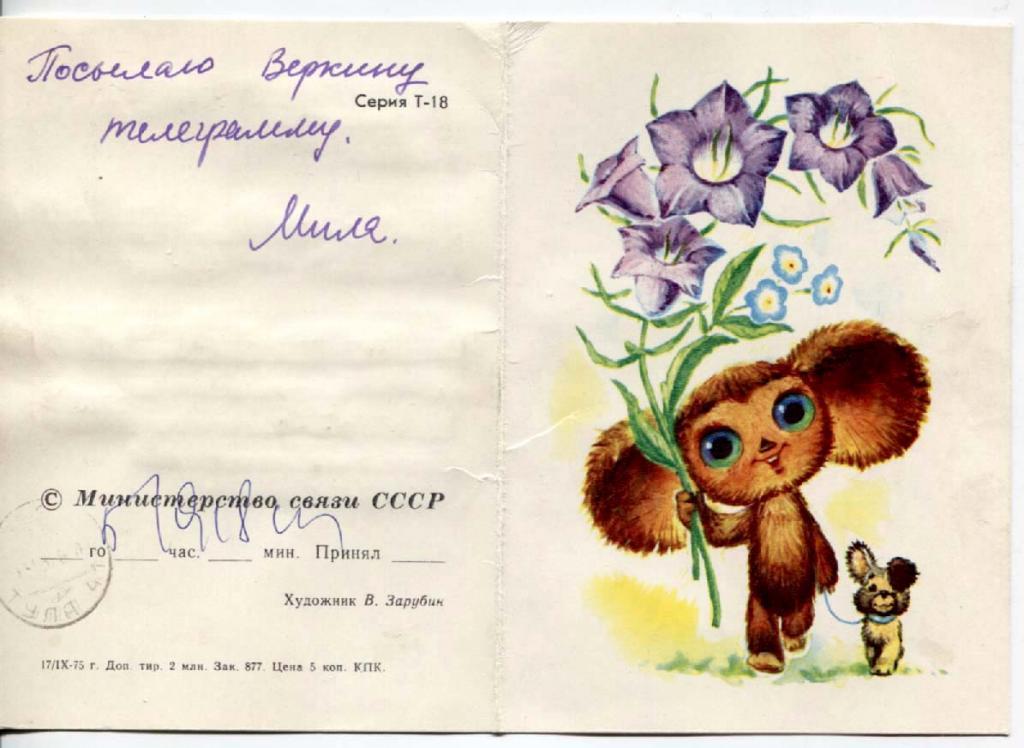 Посылаю Веркину
Серия Т-18
телеграмму.
Миля.
© Министерство связи СССР
____ го ____ час. ____ мин. Принял ____
Художник В. Зарубин
17/IX-75 г. Доп. тир. 2 млн. Зак. 877. Цена 5 коп. КПК.